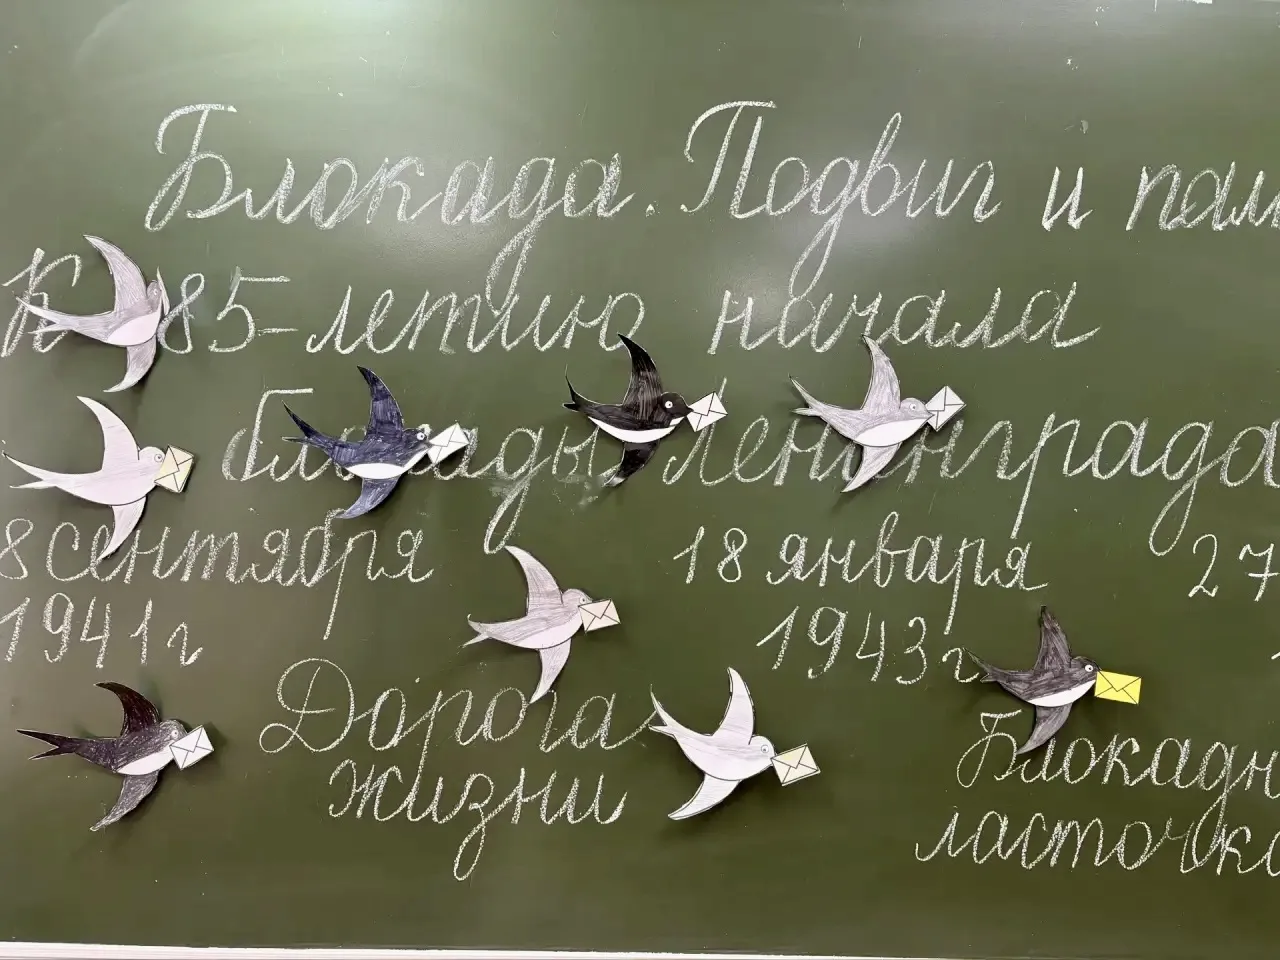 Блокада. Подвиг и пам
К 85-летию начала
блокады Ленинграда
8 сентября 18 января 27
1941г 1943г 1
Дорога
жизни
Блокадн
ласточка